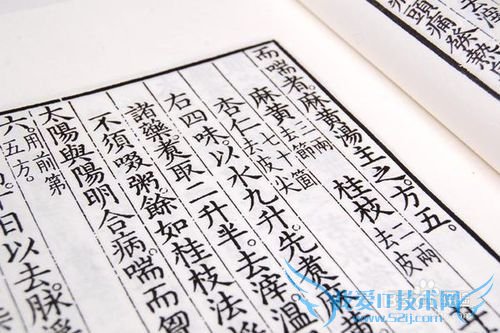 頭痛發熱
而喘者。麻黄湯主之。方五。
麻黄 三兩去節 桂枝 二兩去皮
杏仁 七十箇去皮尖
右四味以水九升。先煮
諸藥。煮取二升半。去滓。温
不須啜粥。餘如桂枝法
太陽與陽明合病喘而
六。用前第五方。
十日以去。脉
我爱IT技术网
www.52ij.com